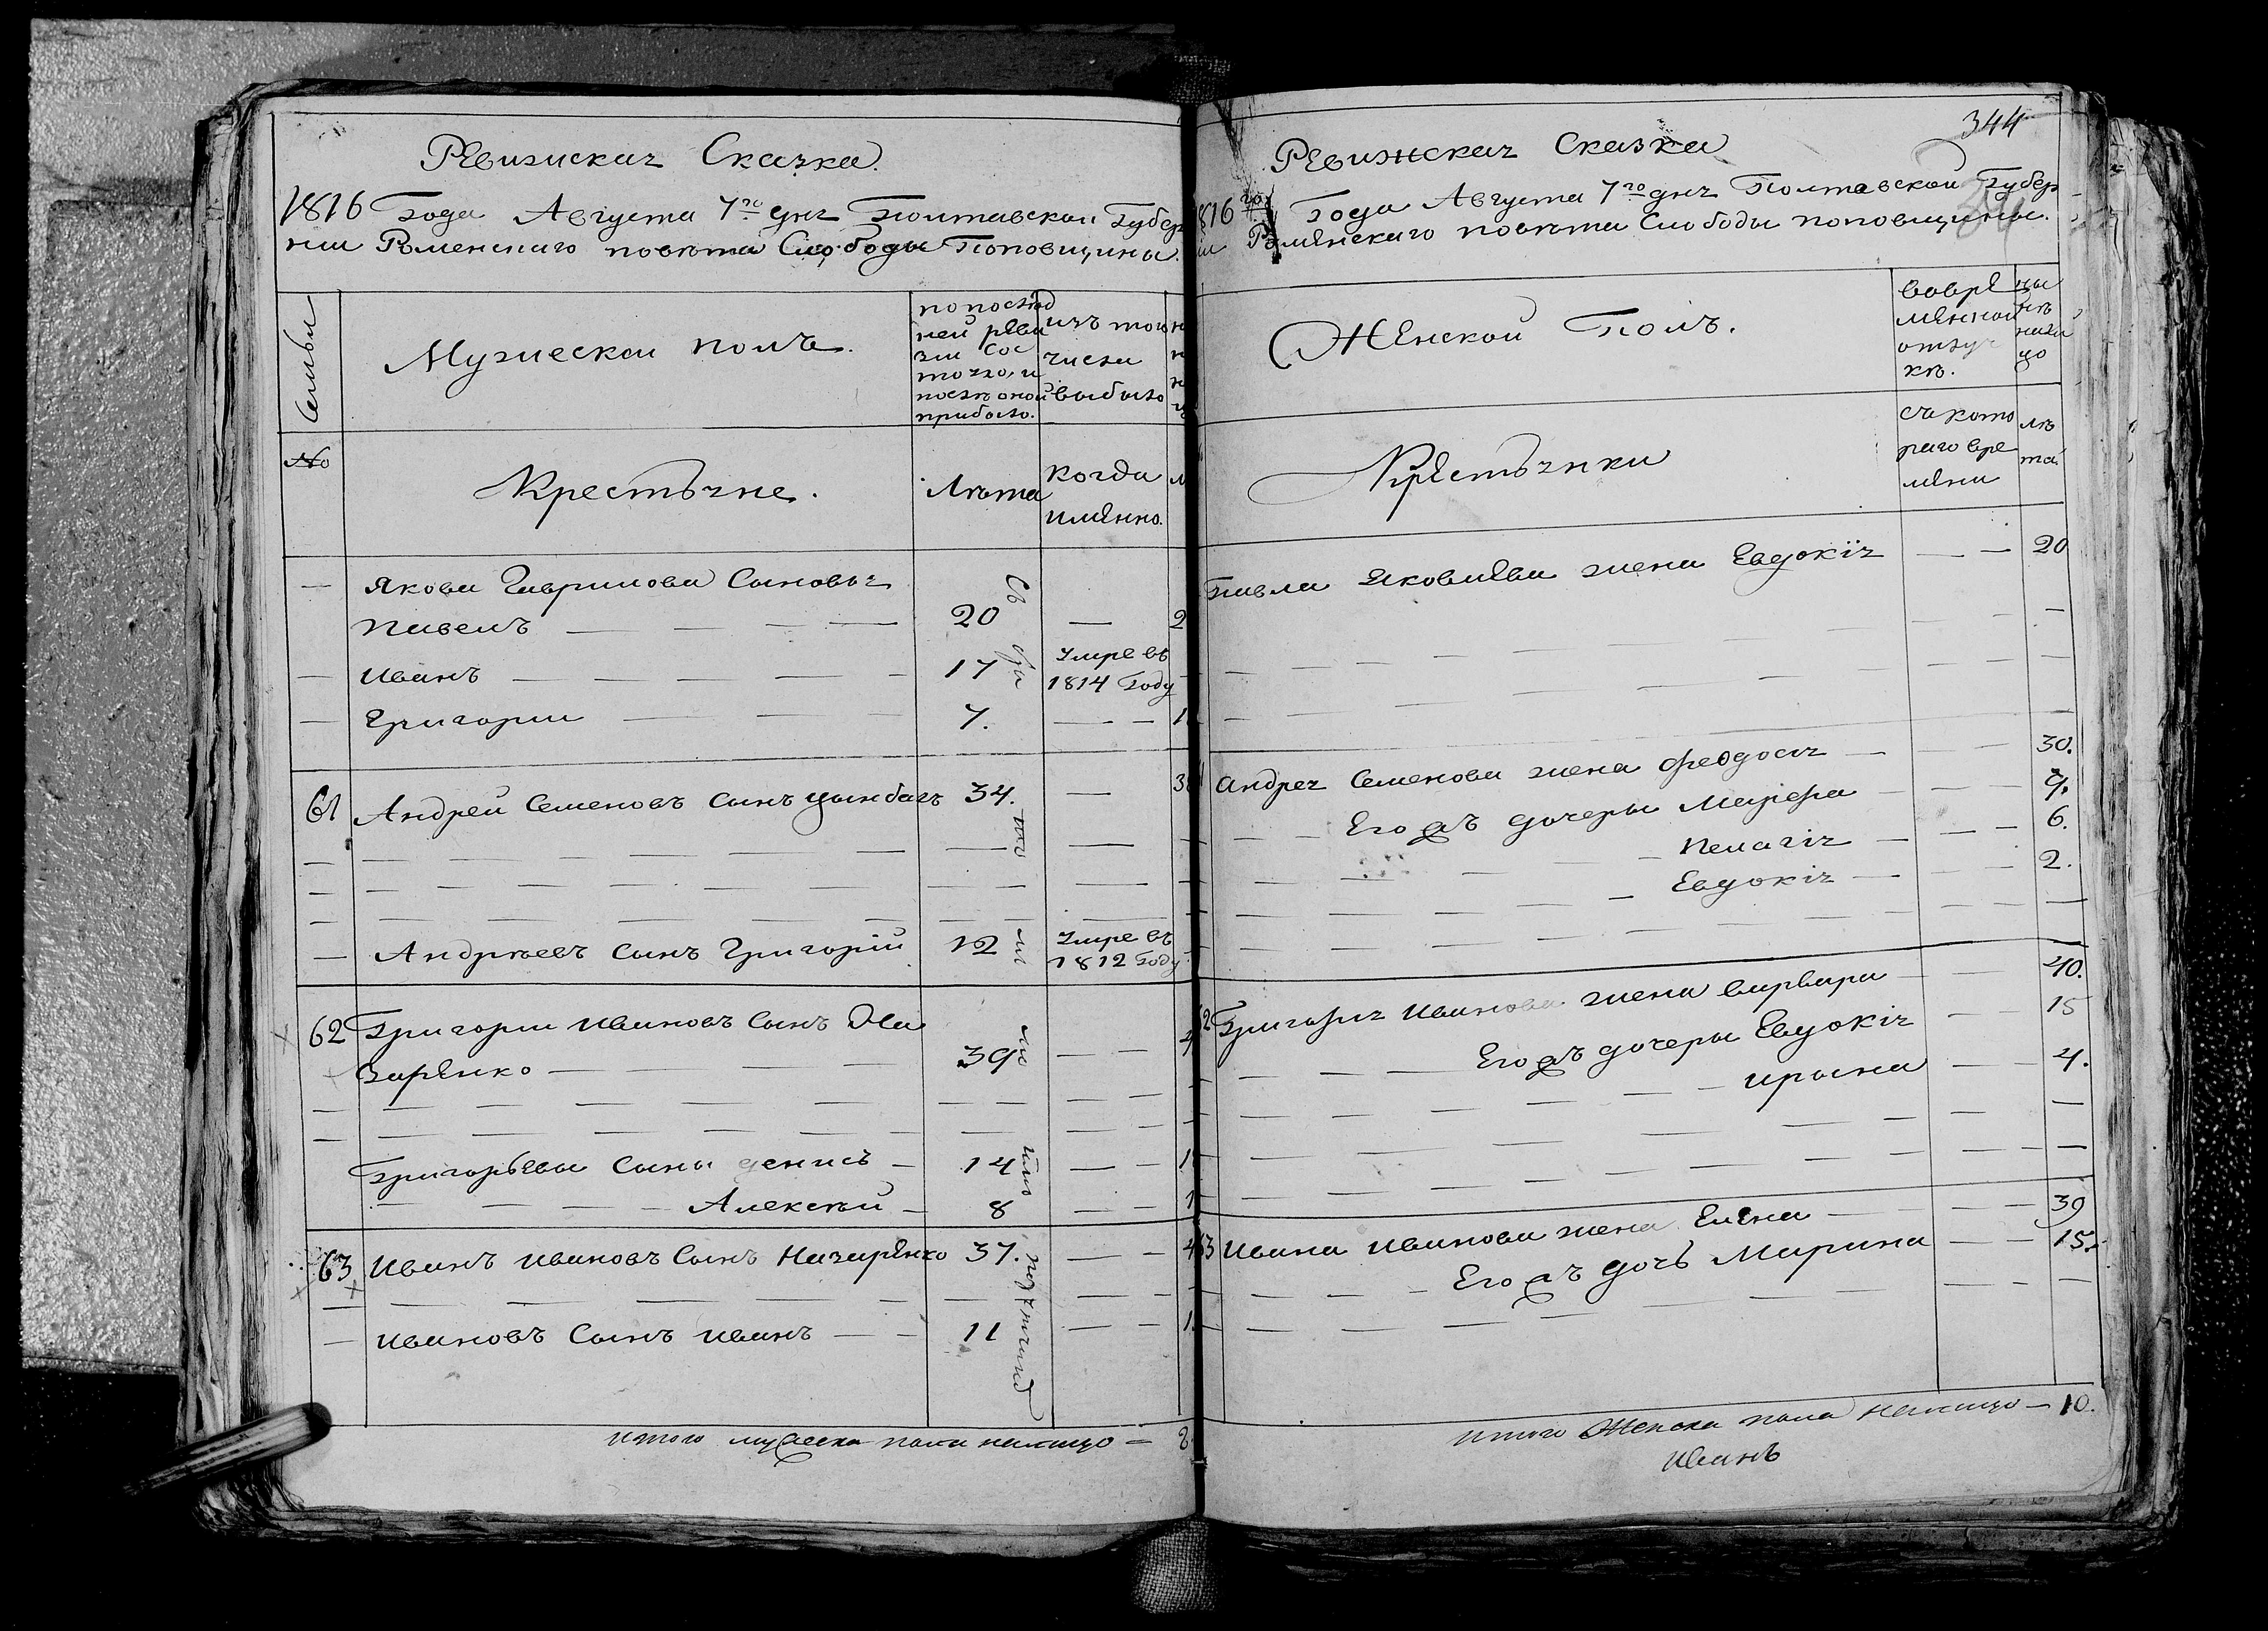 Ревизская Сказка.
1816 Года Августа 7го дня Полтавской Губер
нии Роменского повѣта Слободы Поповщины.
Семьи
Мужеской полъ.
по послѣд
ней реви
зіи сос
тояло, и
послѣ оной
прибыло.
изъ того
числа
выбыло
№
Крестьяне.
Лѣта
когда
именно.
— Якова Гаврилова Сыновья
Павелъ — — — — 20 — 2
— Иванъ — — — — 17 Умре въ
1814 Году
— Григории — — — 7. — — 1
61 Андрей Семеновъ сынъ Цымбалъ 34. — 3
— Андрѣевъ сынъ Григорій 12 Умре въ
1812 Году
62 Григории Ивановъ Сынъ На
заренко — — — 39 — — 4
Григорьевы Сыны Денисъ — 14 — — 1
— — — — Алексѣй — 8 — — 1
63 Иванъ Ивановъ Сынъ Назаренко 37. — — 4
— Ивановъ Сынъ Иванъ — — 11 — — 1
итого мужеска пола налицо —
344
Ревизская Сказка
1816го Года Августа 7го дня Полтавской Губер
ніи Роменскаго повѣта Слободы поповщины.
Женской Полъ.
во вре
менной
отлуч
кѣ.
ны
нѣ
нали
цо
Крестьянки
съ кото
раго вре
мени
лѣ
та
Павла Яковлева жена Евдокія — — 20
Андрея Семенова жена Феодосія — — — 30.
— — Его жъ дочеры Марфа — — — 9.
— Пелагія — — — 6.
— Евдокія — — — 2.
62 Григорія Иванова жена Варвара — — 40.
— — — Его жъ дочеры Евдокія — — 15
— Ирына — — 4.
63 Ивана Иванова жена Елена — — — 39
— — — — Его жъ дочь Марина — — 15.
итого Женска пола налицо — 10.
Иванъ